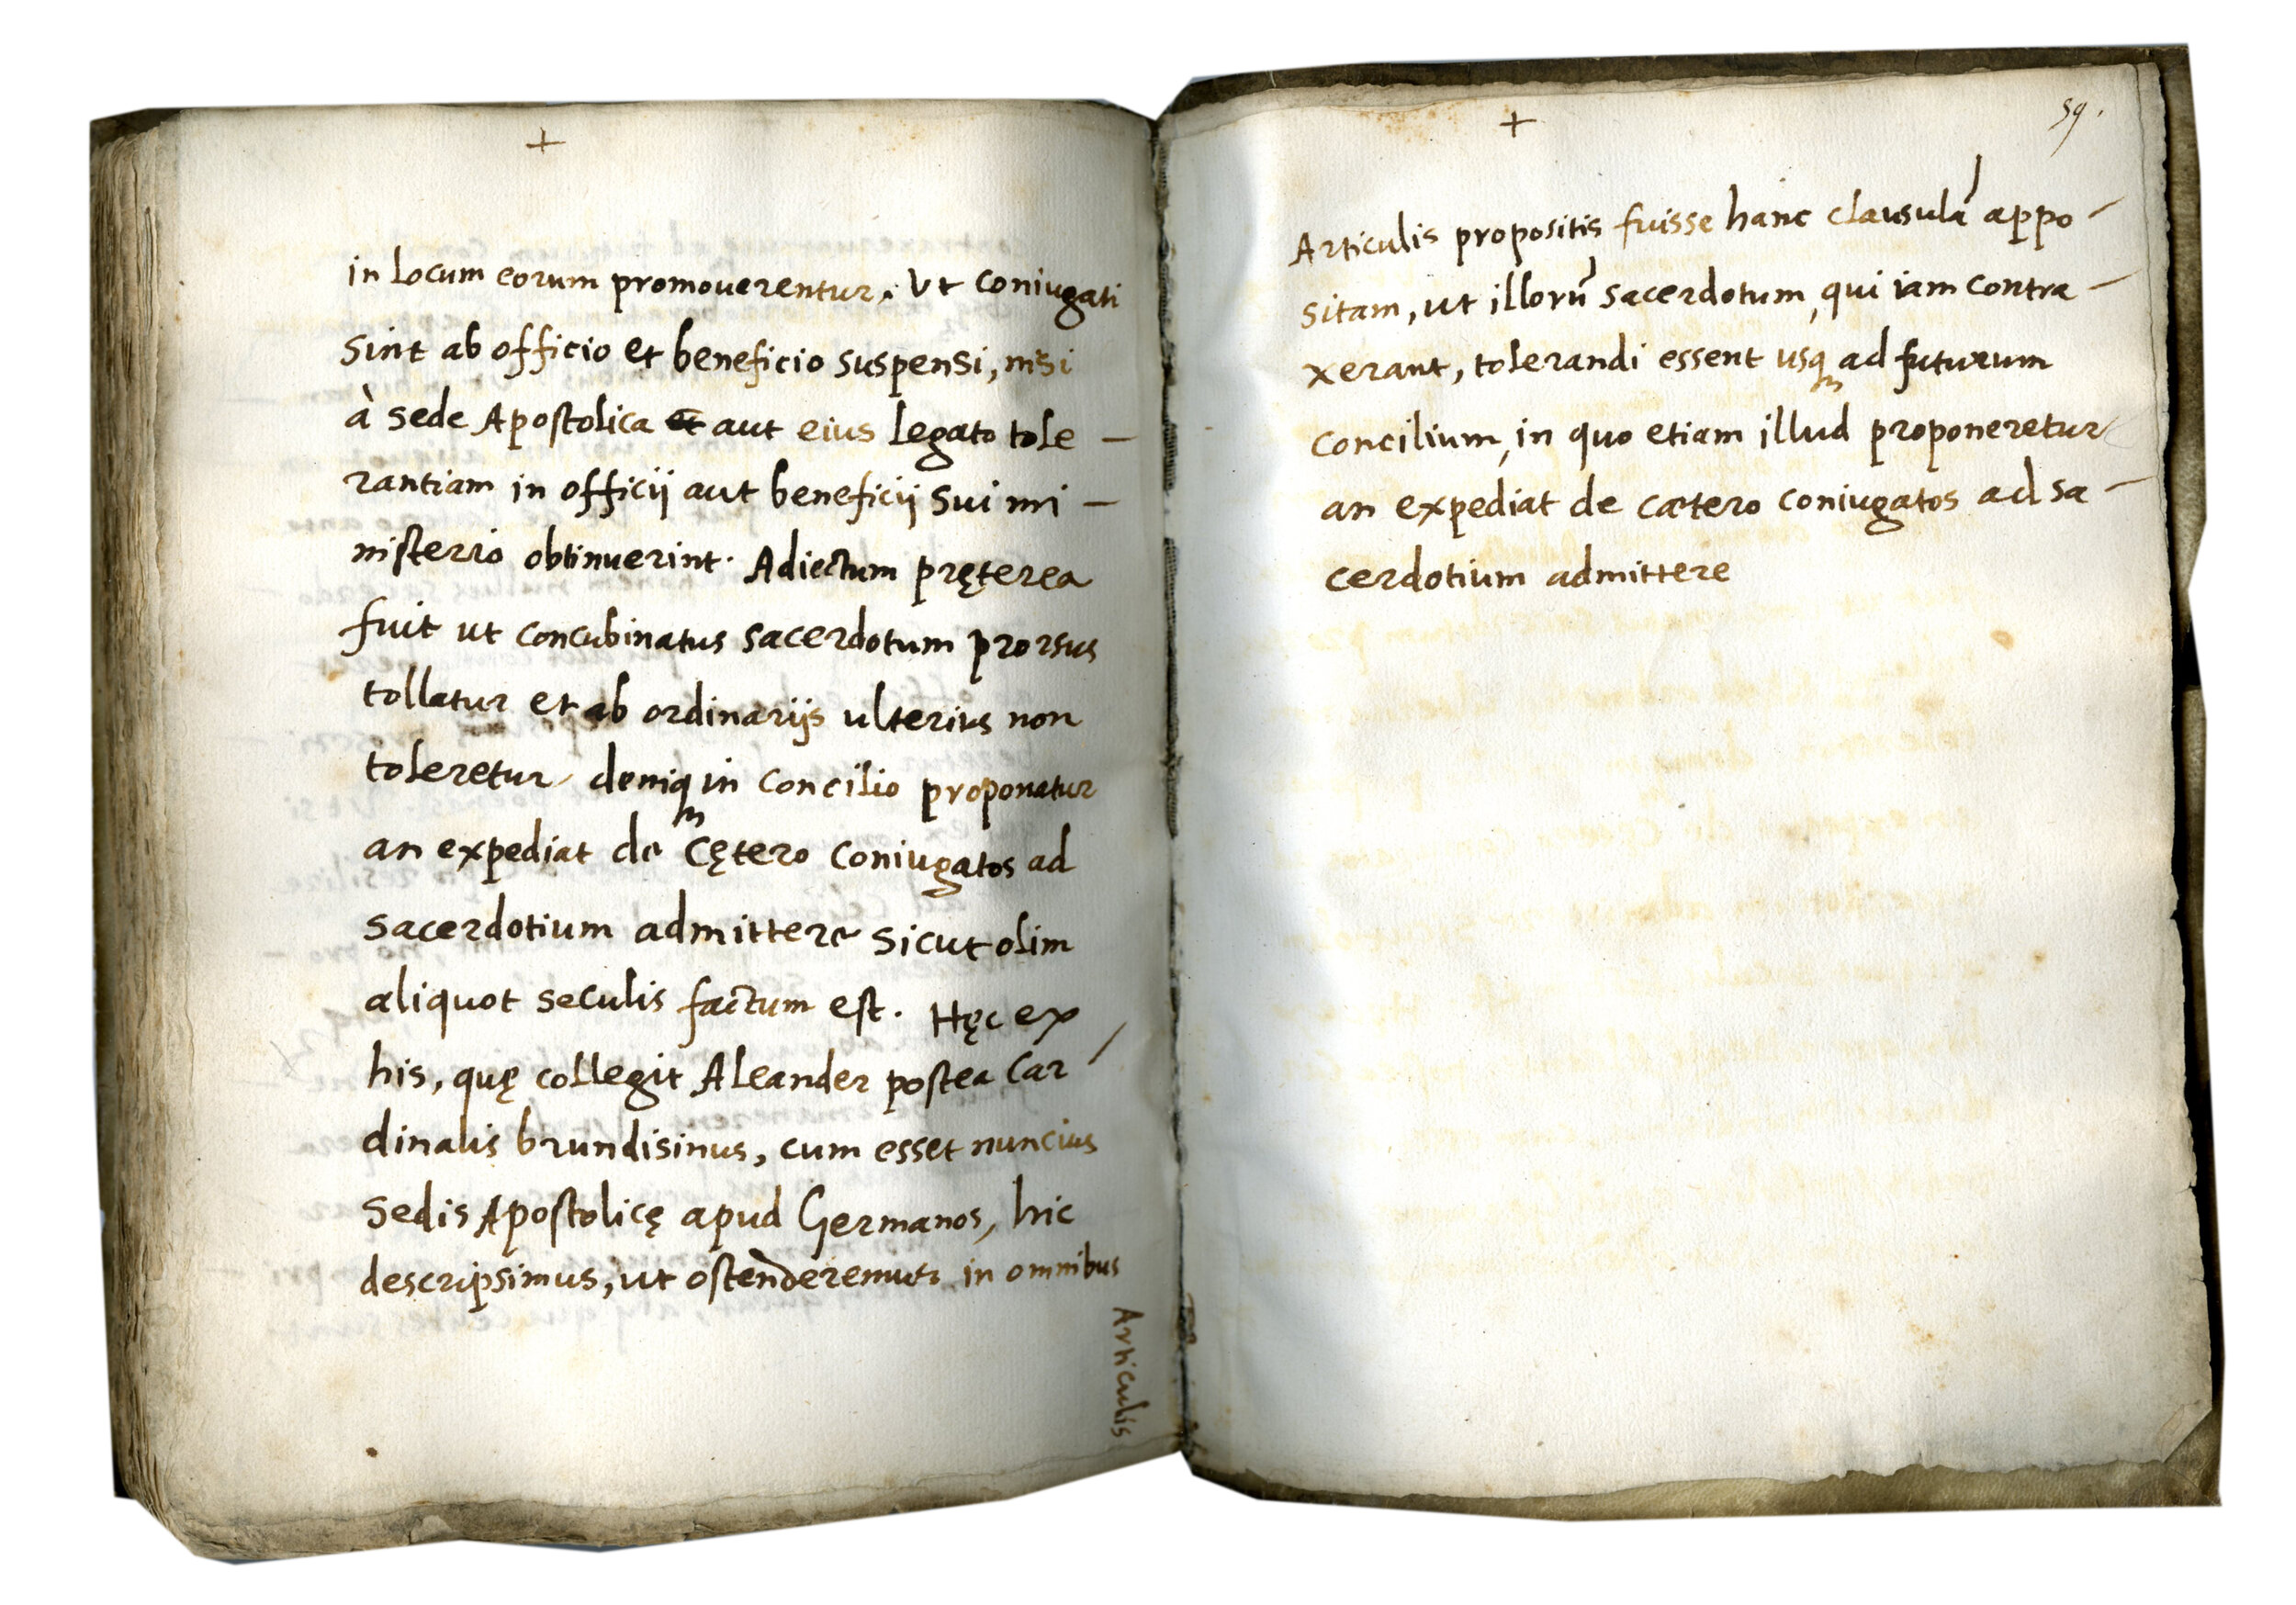 +
in locum eorum promouerentur. Ut coniugati
sint ab officio et beneficio suspensi, nisi
à sede Apostolica et aut eius legato tole —
rantiam in officij aut beneficij sui mi —
nisterio obtinuerint. Adiectum pręterea
fuit ut concubinatus sacerdotum prorsus
tollatur et ab ordinarijs ulterius non
toleretur deniq in Concilio proponatur
an expediat de cętero coniugatos ad
sacerdotium admittere sicut olim
aliquot seculis factum est. Hęc ex
his, quę collegit Aleander postea Car /
dinalis brundisinus, cum esset nuncius
Sedis Apostolicę apud Germanos, hic
descripsimus, ut ostenderemus in omnibus
Articulis
+
59.
Articulis propositis fuisse hanc clausulã appo –
sitam, ut illorũ sacerdotum, qui iam contra –
xerant, tolerandi essent usq ad futurum
Concilium, in quo etiam illud proponeretur
an expediat de cætero coniugatos ad sa –
cerdotium admittere